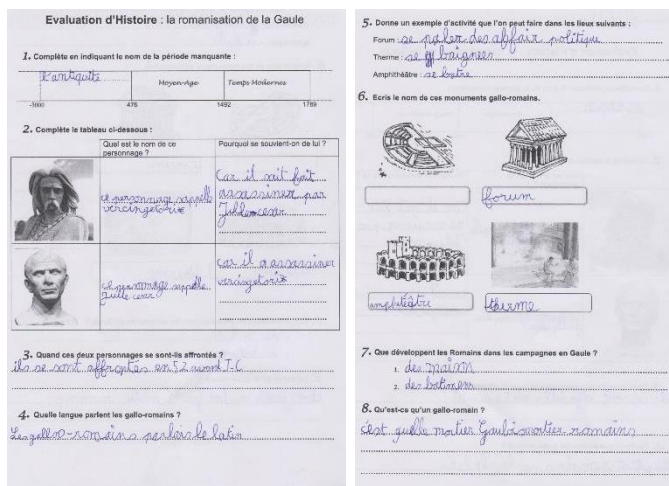 Evaluation d'Histoire : la romanisation de la Gaule
1. Complète en indiquant le nom de la période manquante :
l'antiquité
Moyen-Age
Temps Modernes
476
1492
1789
2. Complète le tableau ci-dessous :
Quel est le nom de ce personnage ?
Pourquoi se souvient-on de lui ?
ce personnage sappelle
vercingetorix
Car il sait fait
assassiner par
Jule cesar
ce personnage sappelle
Car il a assassiner
vercingetorix
3. Quand ces deux personnages se sont-ils affrontés ?
ils se sont affrontés en 52 avant J-C
4. Quelle langue parlent les gallo-romains ?
Les gallos-romains parlais le latin
5. Donne un exemple d'activité que l'on peut faire dans les lieux suivants :
Forum : se parler des affair politique
Therme : se baigner
Amphithéâtre : se batre
6. Ecris le nom de ces monuments gallo-romains.
forum
amphiteâtre
therme
7. Que développent les Romains dans les campagnes en Gaule ?
1. des maison
2. des batimens
8. Qu'est-ce qu'un gallo-romain ?
c'est quelle moitier Gaulois moitier romains